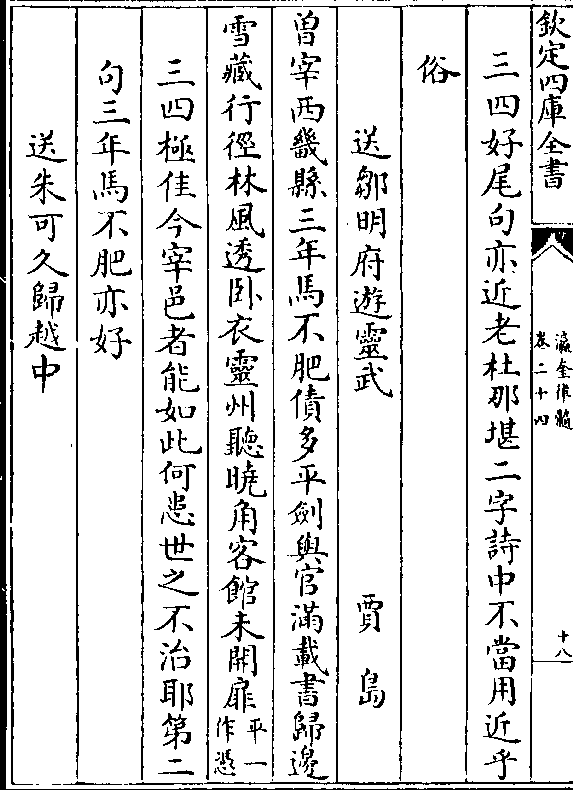 欽定四庫全書
瀛奎律髓
卷二十四
十八
三四好尾句亦近老杜那堪二字詩中不當用近乎
俗
送鄒明府遊靈武
賈島
曾宰西畿縣三年馬不肥債多平劍與官滿載書歸邊
雪藏行徑林風透臥衣靈州聽曉角客館未開扉平一
作憑
三四極佳今宰邑者能如此何患世之不治耶第二
句三年馬不肥亦好
送朱可久歸越中